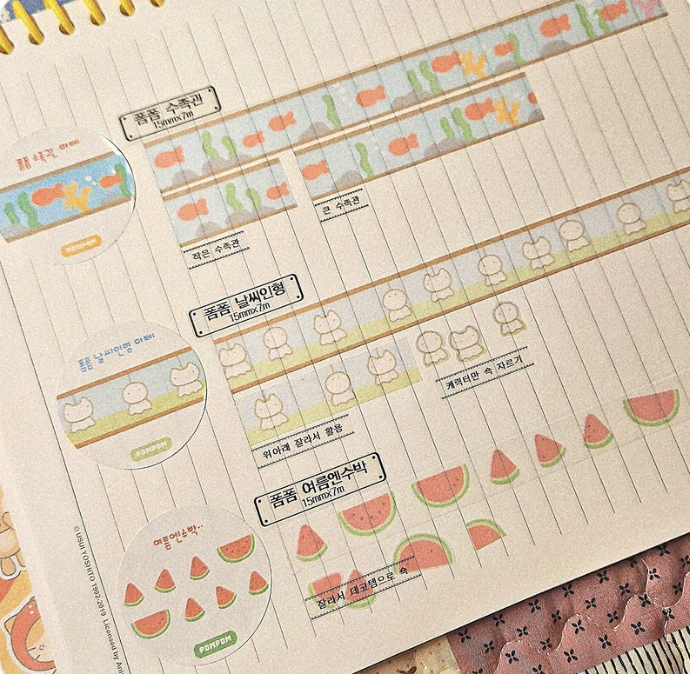 폼폼 수족관
15mmx7m
폼폼 수족관 테이프
POMPOM
작은 수족관
큰 수족관
폼폼 날씨인형
15mmx7m
폼폼 날씨인형 테이프
POMPOM
캐릭터만 쏙 자르기
위아래 잘라서 활용
폼폼 여름엔수박
15mmx7m
여름엔수박..
POMPOM
잘라서 데코템으로 쏙
© USUI YOSHITO 1992-2019 Licensed by